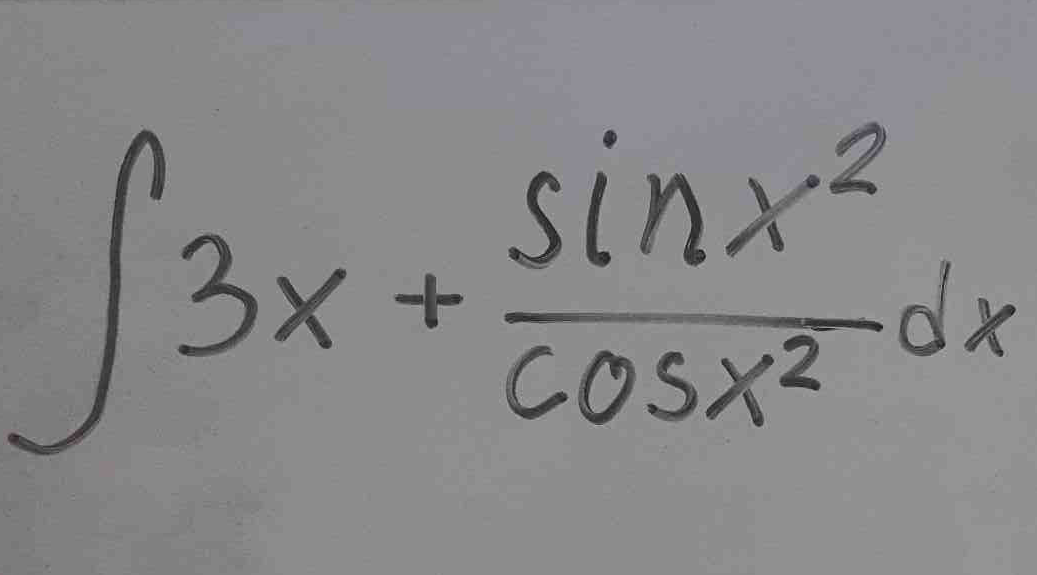 ∫ 3x + \frac{sin x^2}{cos x^2} dx